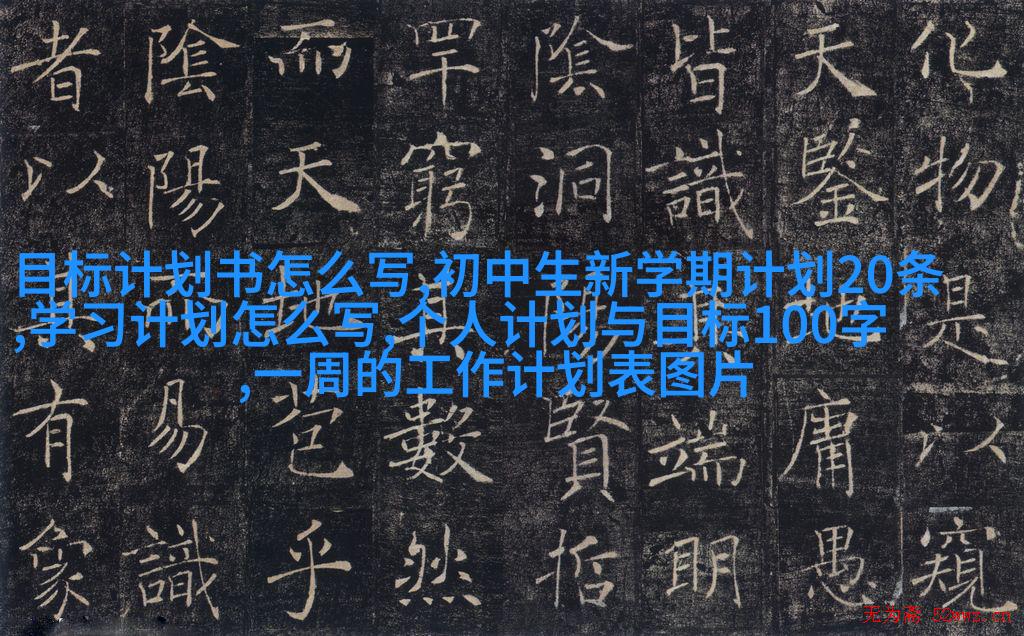 目标计划书怎么写,初中生新学期计划20条
,学习计划怎么写,个人计划与目标100字
,一周的工作计划表图片
化物是以窺
天鑒地庸愚
皆識其端明
陰洞陽賢哲
罕窮其數然
而天地苞乎
陰陽而易識
者以其有象
无为斋 52wwz.cn